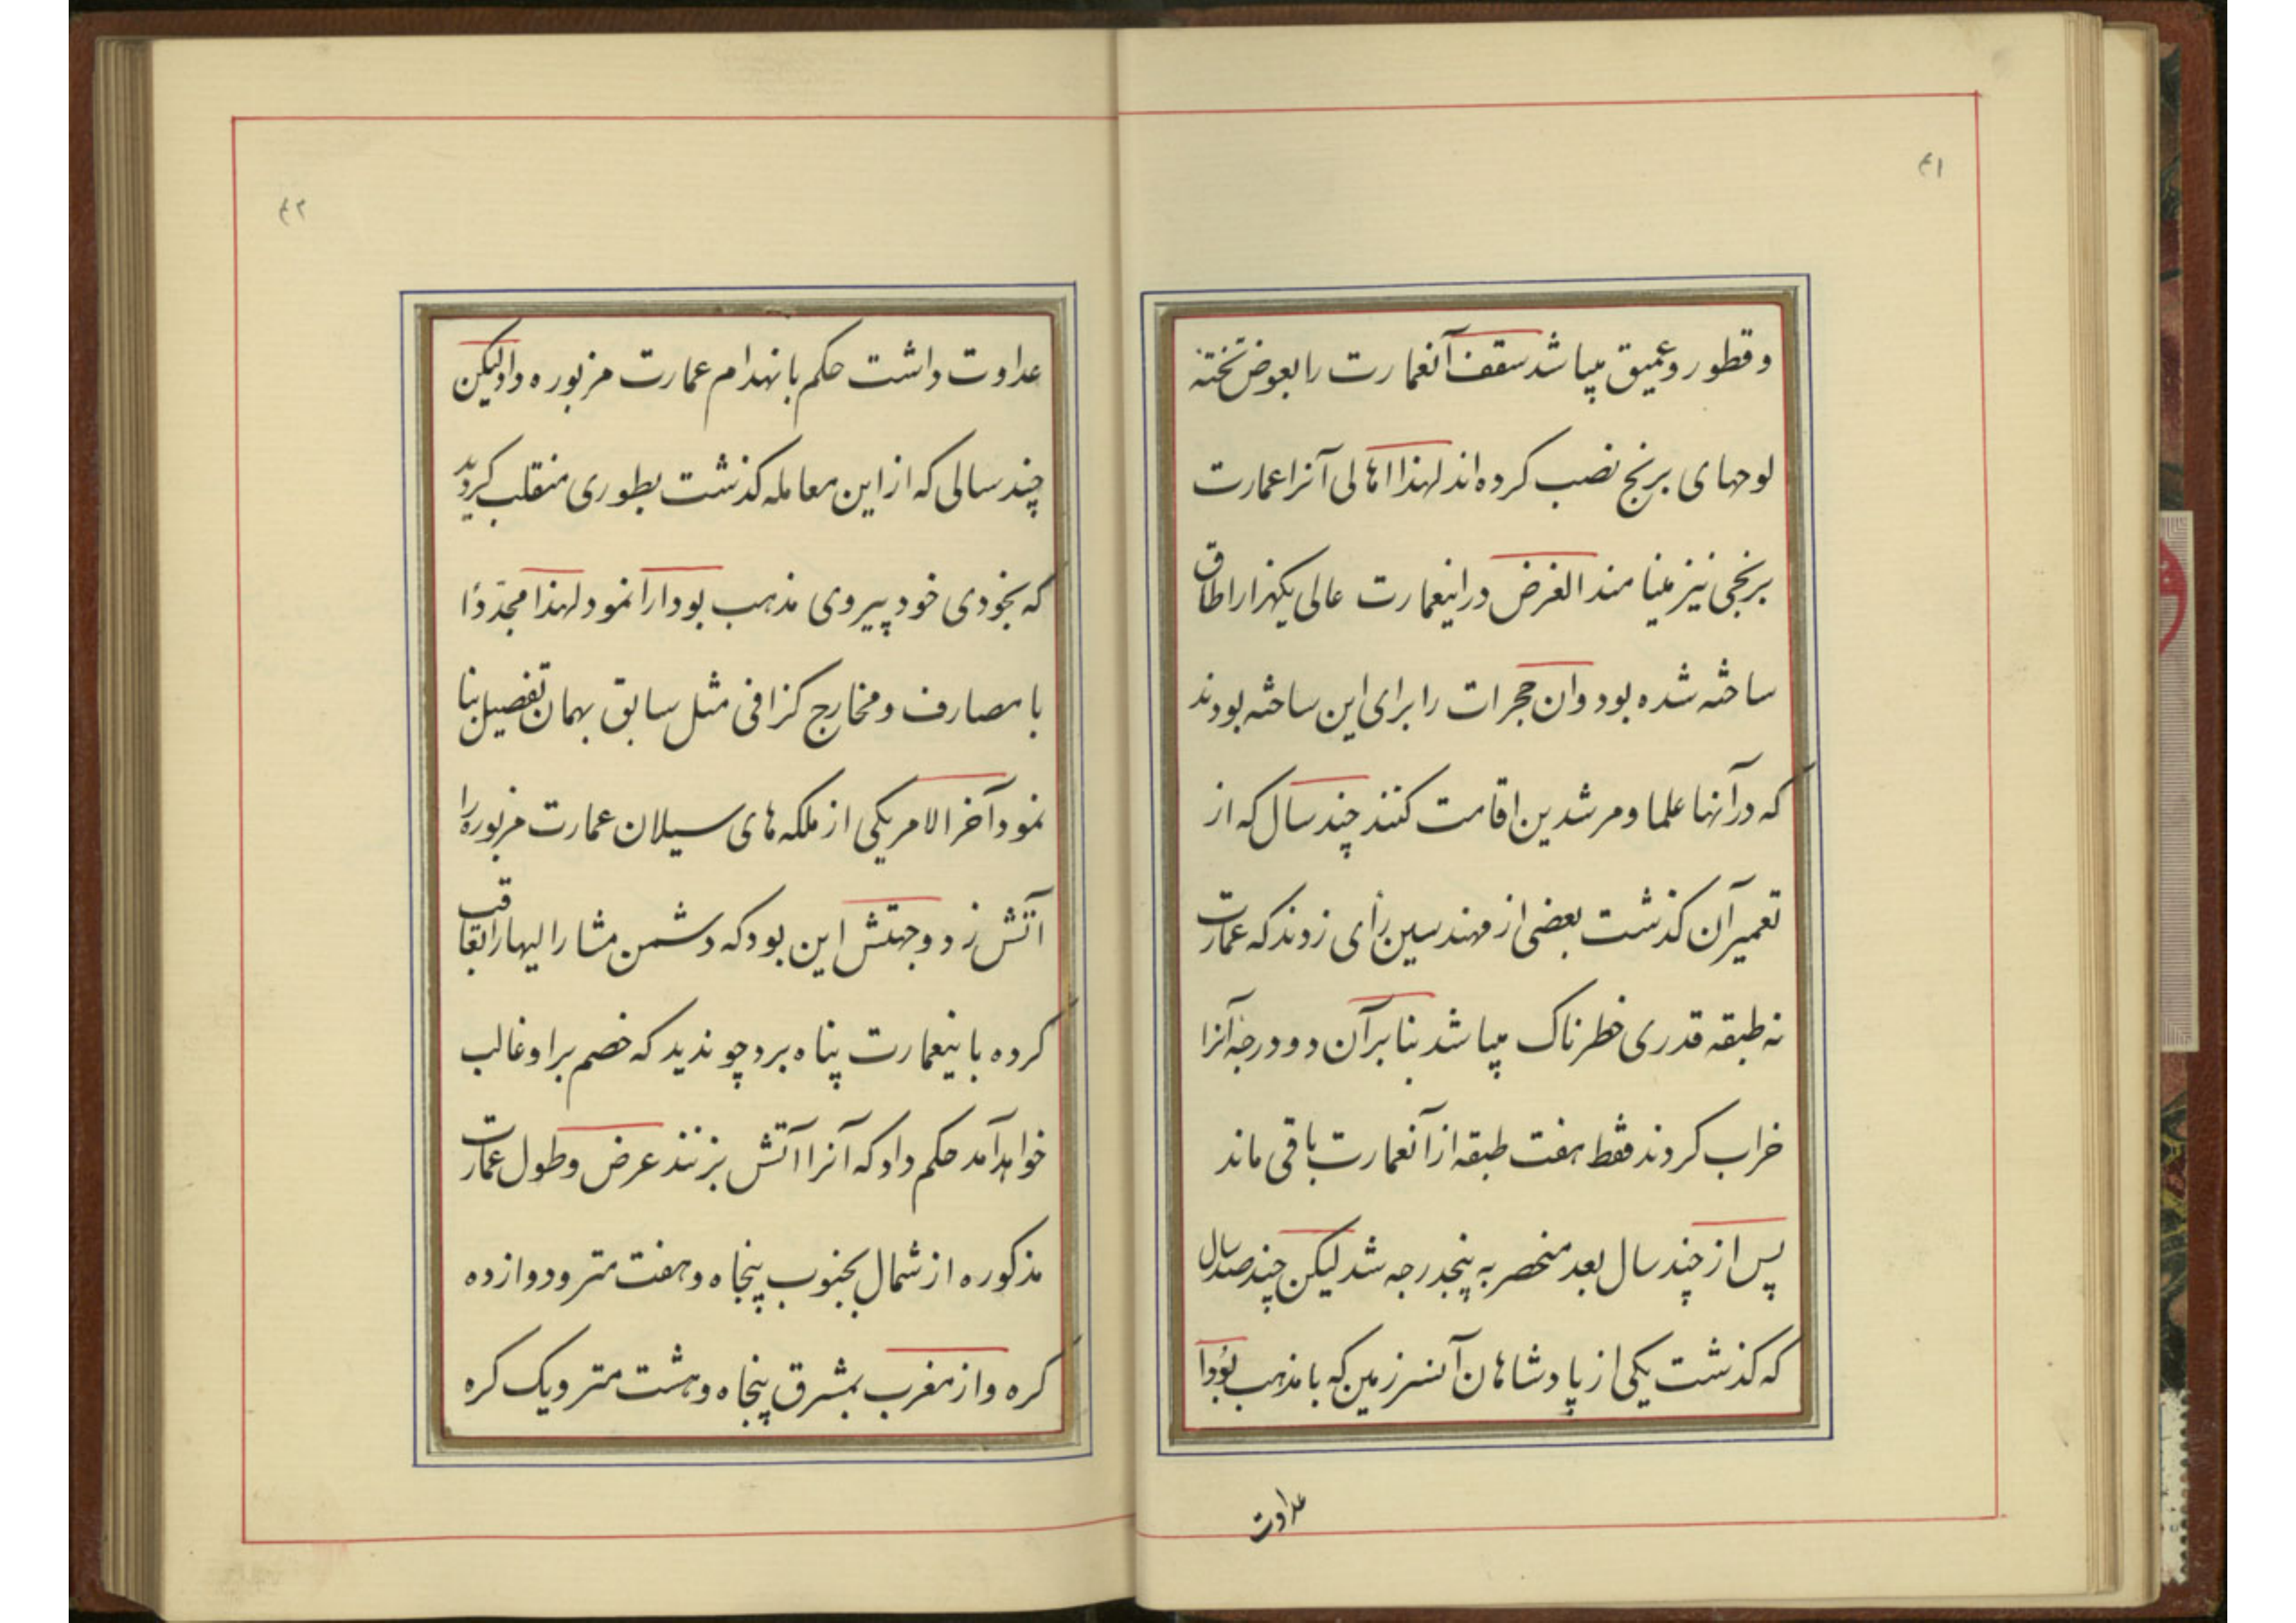 ۴۱
و قطور و عمیق میباشد سقف آنعمارت را بعوض تخته
لوحهای برنج نصب کرده‌اند لهذا اهالی آنرا عمارت
برنجی نیز مینامند الغرض در اینعمارت عالی یکهزار اطاق
ساخته شده بود و ان حجرات را برای این ساخته بودند
که در آنها علما و مرشدین اقامت کنند چند سال که از
تعمیر آن کذشت بعضی از مهندسین رأی زدند که عمارت
نه طبقه قدری خطرناک میباشد بنا بر آن دو درجه آنرا
خراب کردند فقط هفت طبقه از آنعمارت باقی ماند
پس از چند سال بعد منحصر به پنجدرجه شد لیکن چند صد سال
که کذشت یکی از پادشاهان آنسرزمین که با مذهب بودا
عداوت
۴۲
عداوت داشت حکم بانهدام عمارت مزبوره داد لیکن
چند سالی که از این معامله کذشت بطوری منقلب کردید
که بخودی خود پیروی مذهب بودا را نمود لهذا مجدّدًا
با مصارف و مخارج کزافی مثل سابق بهمان تفصیل بنا
نمود آخر الامر یکی از ملکه های سیلان عمارت مزبوره را
آتش زد و جهتش این بود که دشمن مشار الیها را تعاقب
کرده باینعمارت پناه برد چو ندید که خصم بر او غالب
خواهد آمد حکم داد که آنرا آتش بزنند عرض و طول عمارت
مذکوره از شمال بجنوب پنجاه و هفت متر و دوازده
کره و از مغرب بمشرق پنجاه و هشت متر و یک کره